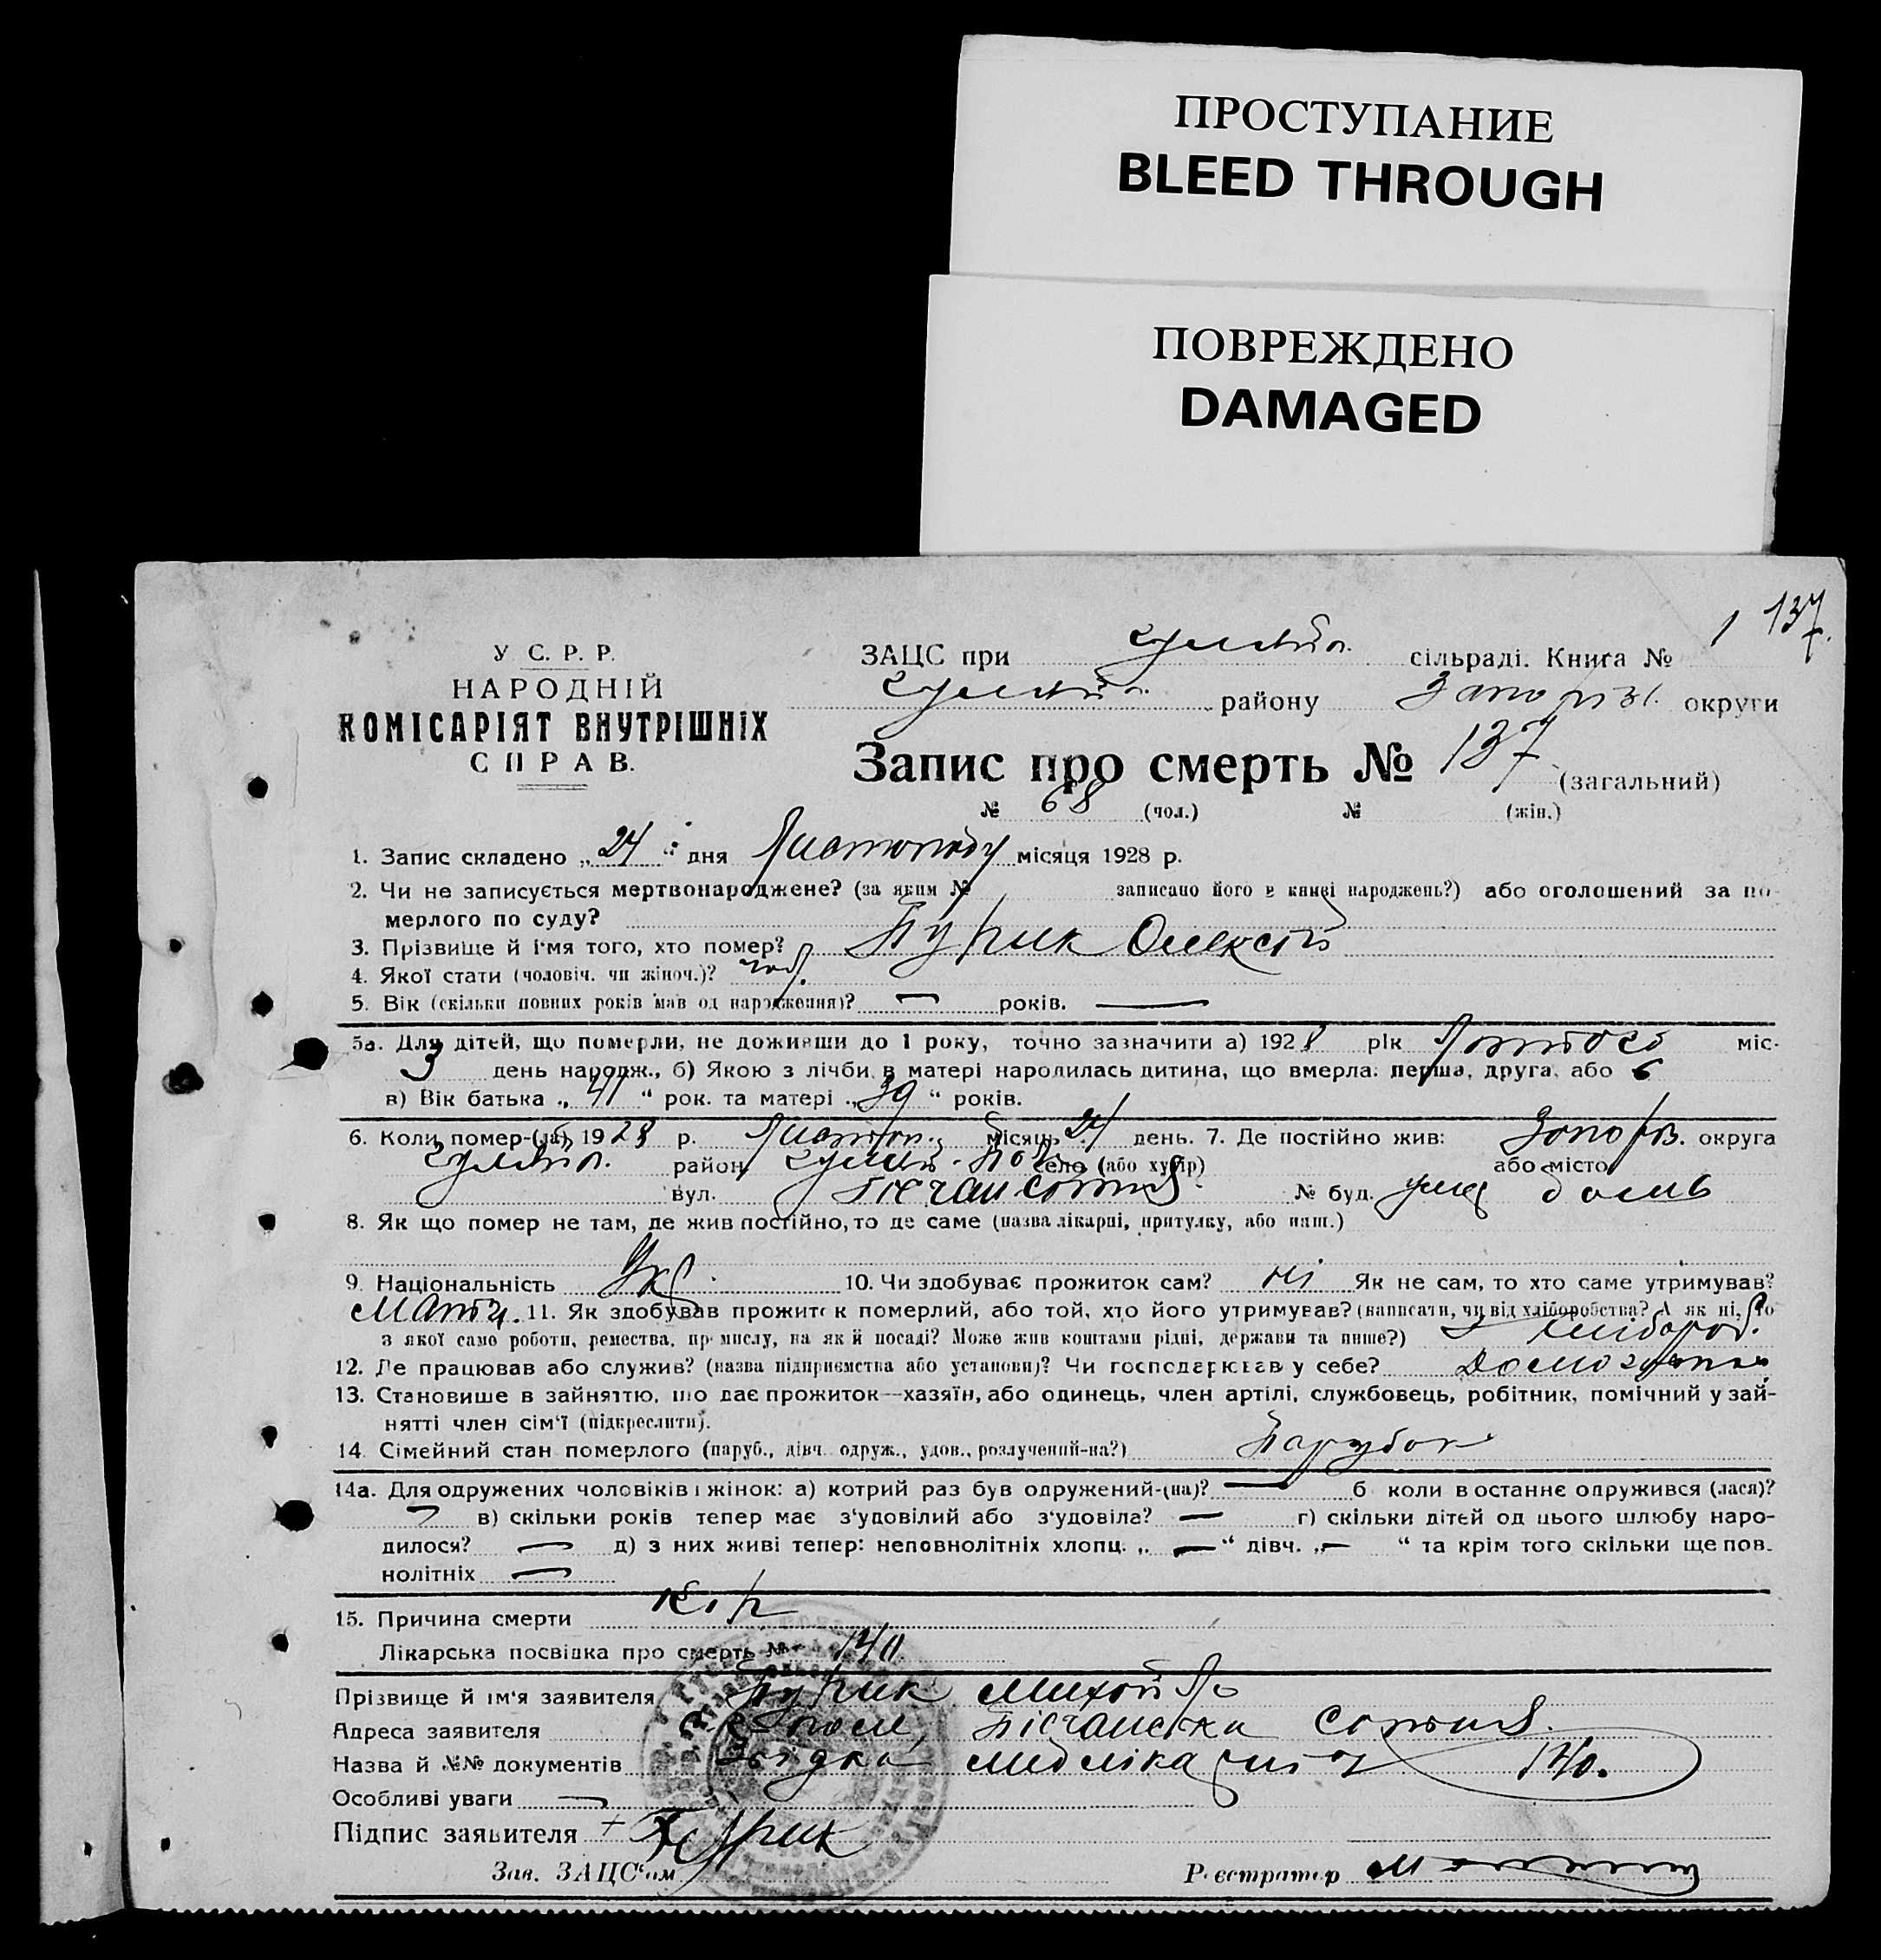 ПРОСТУПАНИЕ
BLEED THROUGH
ПОВРЕЖДЕНО
DAMAGED
1 137
У С. Р. Р.
НАРОДНІЙ
КОМІСАРІЯТ ВНУТРІШНІХ
СПРАВ.
ЗАЦС при сільраді. Книга №
району Запоріз. округи
Запис про смерть № 137 (загальний)
№ 68 (чол.) № (жін.)
1. Запис складено „24" дня Листопаду місяця 1928 р.
2. Чи не записується мертвонароджене? (за яким № записано його в книзі народжень?) або оголошений за по-
мерлого по суду?
3. Прізвище й ім'я того, хто помер? Пурик Олексій
4. Якої стати (чоловіч. чи жіноч.)? чол.
5. Вік (скільки повних років мав од народження)? — років. —
5а. Для дітей, що померли, не доживши до 1 року, точно зазначити а) 1928 рік Лютого міс.
3 день народж., б) Якою з лічби в матері народилась дитина, що вмерла: перша, друга, або 6
в) Вік батька „41" рок. та матері „39" років.
6. Коли помер-(ла) 1928 р. Листоп. місяць 24 день. 7. Де постійно жив: Запоріз. округа
район село (або хутір) або місто
вул. Пісчан сотня № буд.
8. Як що помер не там, де жив постійно, то де саме (назва лікарні, притулку, або инш.)
9. Національність Укр. 10. Чи здобуває прожиток сам? ні Як не сам, то хто саме утримував?
Мати. 11. Як здобував прожиток померлий, або той, хто його утримував? (написати, чи від хліборобства? А як ні, то
з якої само роботи, ремества, промислу, на якій посаді? Може жив коштами рідні, держави та инше?) хлібороб.
12. Де працював або служив? (назва підприємства або установи)? Чи господарював у себе?
13. Становище в зайняттю, що дає прожиток—хазяїн, або одинець, член артілі, службовець, робітник, помічний у зай-
нятті член сім'ї (підкреслити).
14. Сімейний стан померлого (паруб., дівч. одруж., удов., розлучений-на?) Парубок
14а. Для одружених чоловіків і жінок: а) котрий раз був одружений-(на)? — б коли в останнє одружився (лася)?
— в) скільки років тепер має з'удовілий або з'удовіла? — г) скільки дітей од цього шлюбу наро-
дилося? — д) з них живі тепер: неповнолітніх хлопц. „—" дівч. „—" та крім того скільки ще пов-
нолітніх —
15. Причина смерти Кір
Лікарська посвідка про смерть № 140
Прізвище й ім'я заявителя Пурик Михайло
Адреса заявителя Пісчанська сотня
Назва й №№ документів 140.
Особливі уваги —
Підпис заявителя + Пурик
Зав. ЗАЦС'ом
Реєстратор